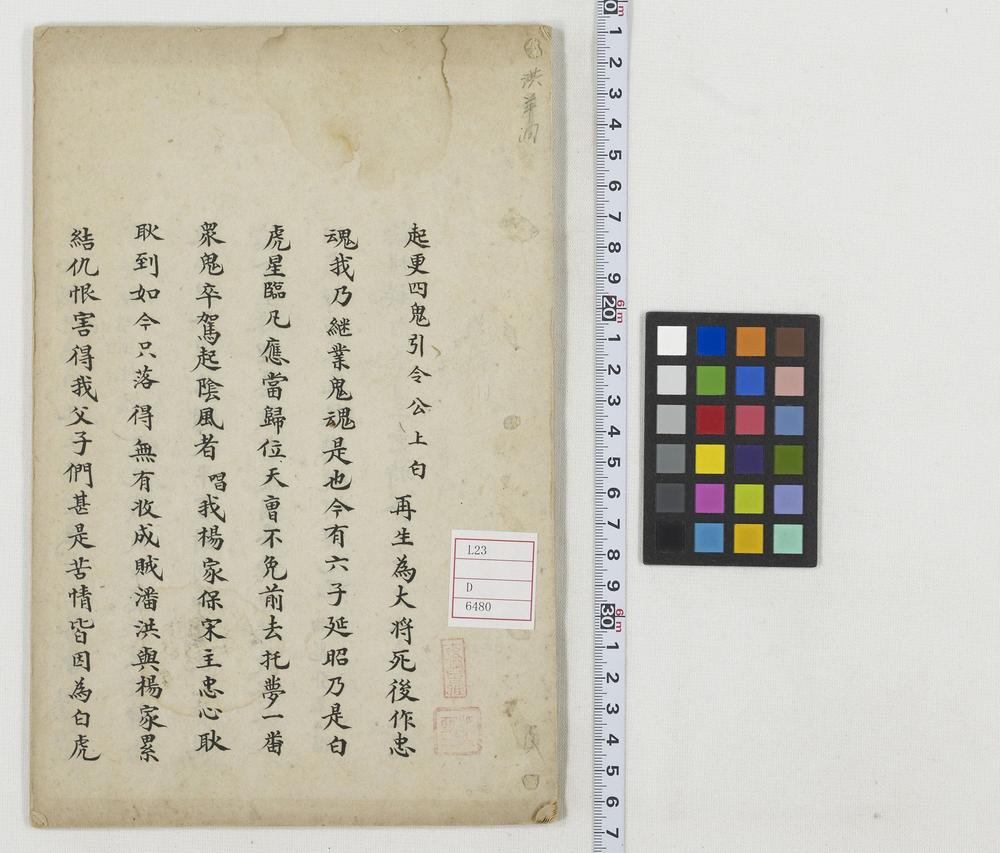 洪羊洞
起更四鬼引令公上白 再生為大将死後作忠
魂我乃継業鬼魂是也今有六子延昭乃是白
虎星臨凡應當歸位天曹不免前去托夢一番
衆鬼卒駕起陰風者 唱我楊家保宋主忠心耿
耿到如今只落得無有收成賊潘洪與楊家累
結仇恨害得我父子們甚是苦情皆因為白虎
L23
D
6480
0
1
2
3
4
5
6
7
8
9
20
1
2
3
4
5
6
7
8
9
30
1
2
3
4
5
6
7